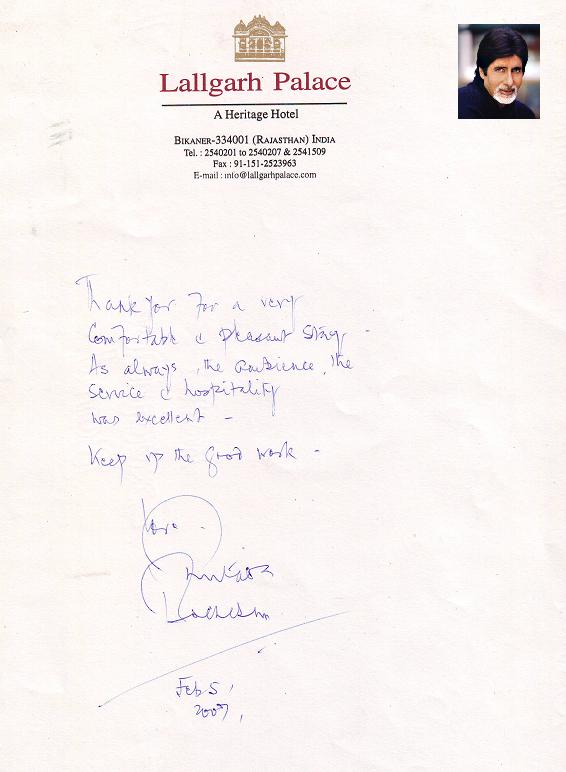 Lallgarh Palace
A Heritage Hotel
BIKANER-334001 (RAJASTHAN) INDIA
Tel. : 2540201 to 2540207 & 2541509
Fax : 91-151-2523963
E-mail : info@lallgarhpalace.com
Thank you for a very
Comfortable & pleasant stay -
As always, the ambience, the
service & hospitality
was excellent -
Keep up the good work -
love -
Feb 5,
2007,